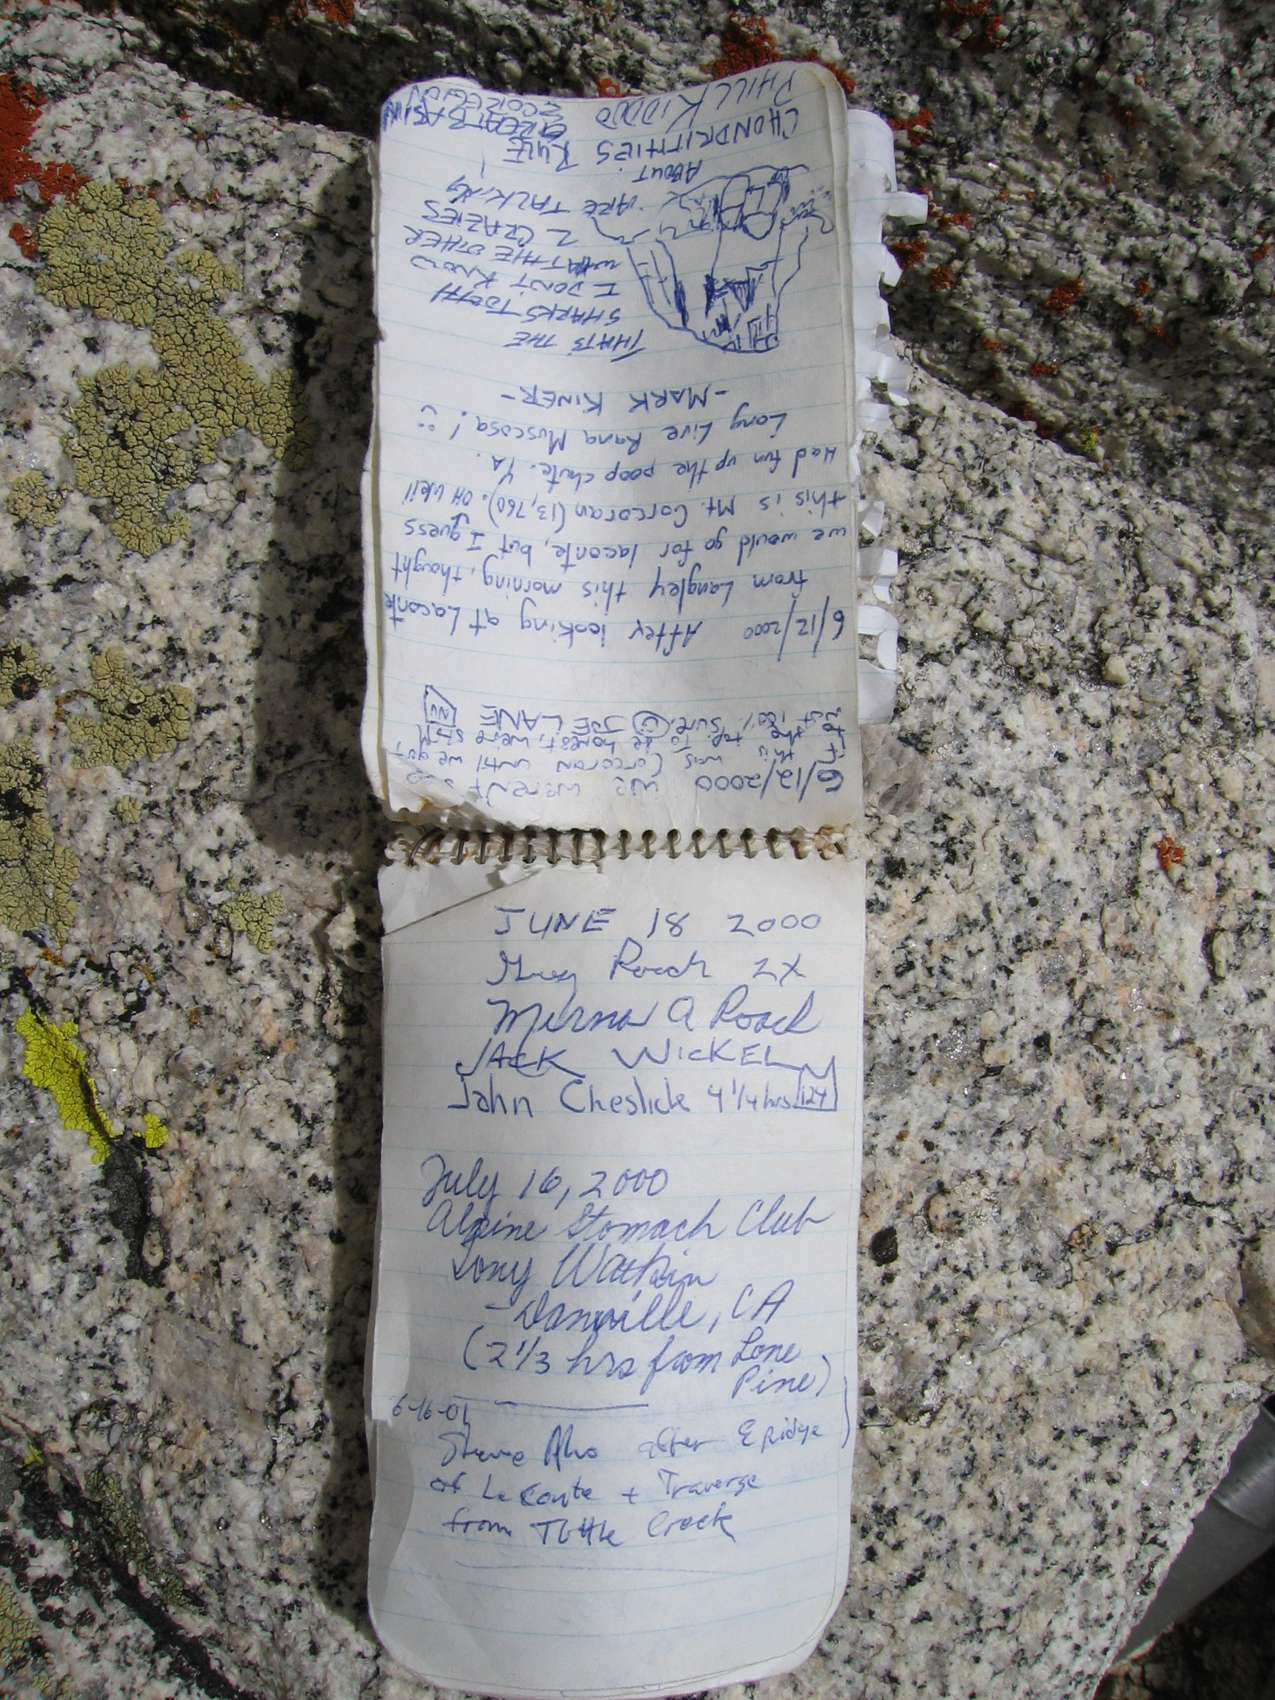 6/12/2000 we weren't
if this was Corcoran until we got
to the top. To be honest, we're still
not 100% sure. JOE LANE NV
6/12/2000 After looking at Laconte
from Langley this morning, thought
we would go for laconte, but I guess
this is Mt. Corcoran (13,760). OH well
Had fun up the poop chute. YA.
Long Live Rana Muscosa!
-MARK KINER-
THATS THE
SHARKS TOOTH
I DON'T KNOW
WHAT THE OTHER
2 CRAZIES
ARE TALKING
ABOUT.
CHONDRITHIES RULE!
PHILL KIDDOO
GREAT BASIN
ECOREGION
JUNE 18 2000
Greg Roach 2X
Mirna A Roach
JACK WICKEL
John Cheslick 4 1/4 hrs 124
July 16, 2000
Alpine Stomach Club
Tony Watkin
- Danville, CA
(2 1/3 hrs from Lone
Pine)
6-16-01
Steve Aho after E ridge
of LeConte + Traverse
from Tuttle Creek